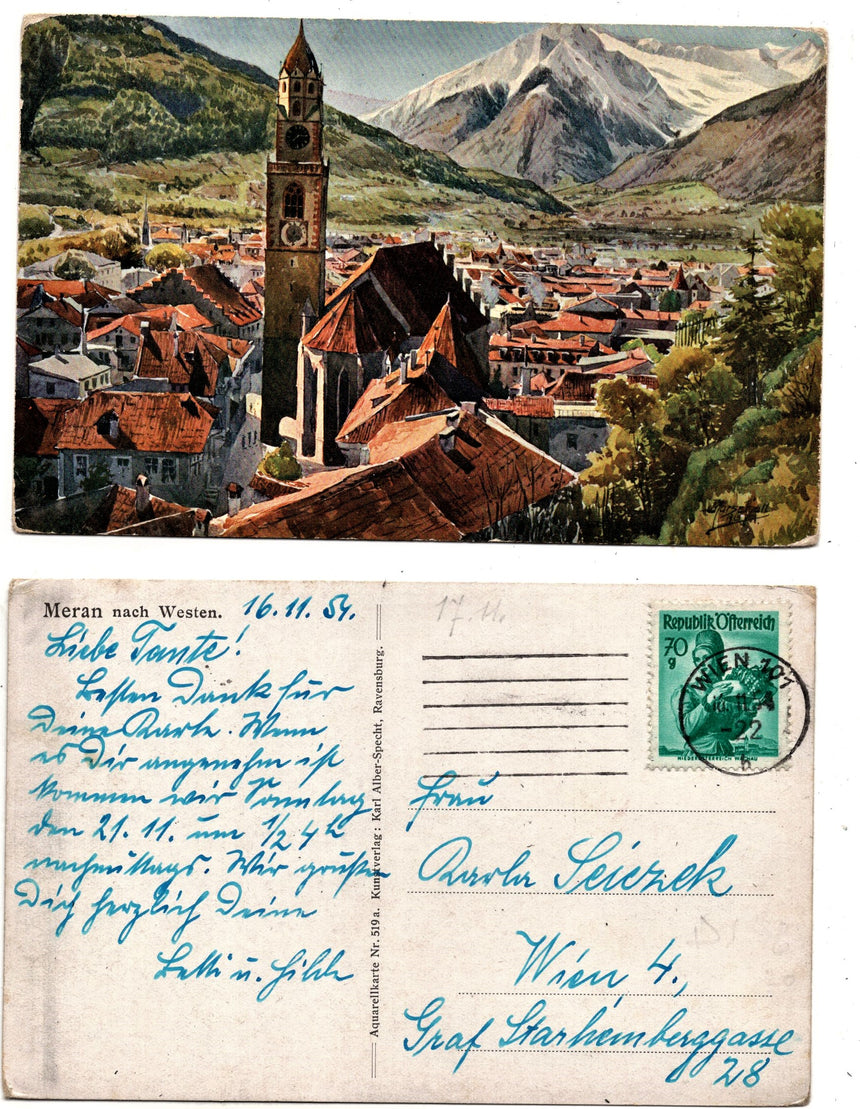 Meran nach Westen. 16.11.54.
Liebe Tante!
Besten Dank für
Deine Karte. Wenn
es Dir angenehm ist
kommen wir Sonntag
den 21.11. um 1/2 4h
nachmittags. Wir grüßen
Dich herzlich Deine
Betti u. Hilde
Aquarellkarte Nr. 519a. Kunstverlag: Karl Alber-Specht, Ravensburg.
17.11.
Republik Österreich
70
g
NIEDERÖSTERREICH WACHAU
WIEN 101
-22
h
Frau
Karla Seiczek
Wien, 4.,
Graf Starhemberggasse
28